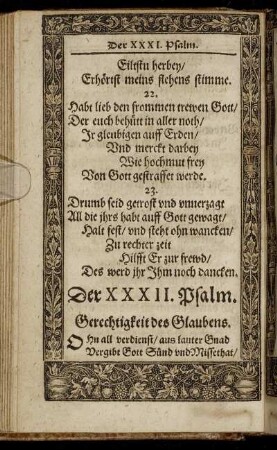 Der XXXI. Psalm.
Eiltstu herbey/
Erhörtst meins flehens stimme.
22.
Habt lieb den frommen trewen Gott/
Der euch behüt in aller noth/
Ir gleubigen auff Erden/
Vnd merckt darbey
Wie hochmut frey
Von Gott gestraffet werde.
23.
Drumb seid getrost vnd vnuerzagt
All die jhrs habt auff Gott gewagt/
Halt fest/ vnd steht ohn wancken/
Zu rechter zeit
Hilfft Er zur frewd/
Des werd jhr Ihm noch dancken.
Der XXXII. Psalm.
Gerechtigkeit des Glaubens.
OHn all verdienst/ aus lauter Gnad
Vergibt Gott Sünd vnd Missethat/